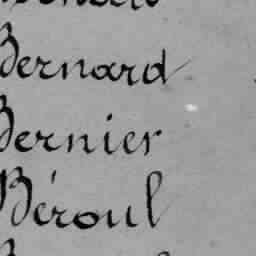 Bernard
Bernier
Béroul